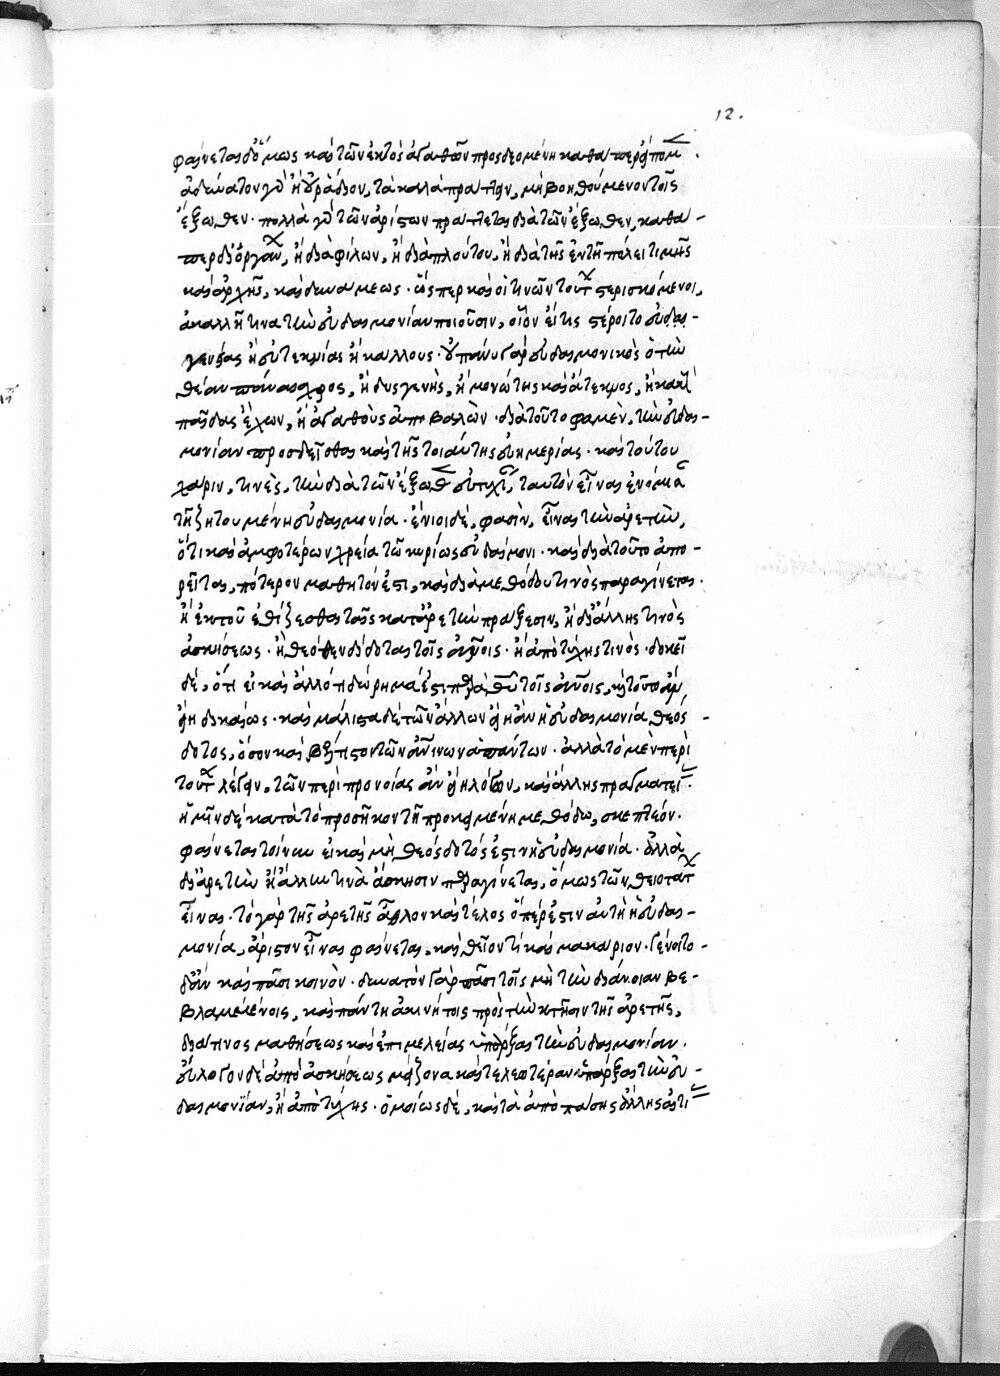 12.
φαίνεται δ' ὅμως καὶ τῶν ἐκτὸς ἀγαθῶν προςδεομένη καθάπερ εἴπομ̅.
ἀδύνατον γὰρ ἢ οὐ ῥάδιον, τὰ καλὰ πράττειν, μὴ βοηθούμενον τοῖς
ἔξωθεν · πολλὰ γὰρ τῶν ἀρίστων πράττεται διὰ τῶν ἔξωθεν, καθά-
περ δι' ὀργάν, ἢ διὰ φίλων, ἢ διὰ πλούτου, ἢ διὰ τῆς ἐν τῇ πόλει τιμῆς
καὶ ἀρχῆς, καὶ δυνάμεως · ὥςπερ καὶ οἵ τινῶν τούτ στερισκόμενοι,
ἀκαλλῆ τινα τὴν εὐδαιμονίαν ποιοῦσιν, οἷον εἴ τις στέροιτο εὐ-
γενείας ἢ εὐτεκνίας ἢ κάλλους · οὐ πάνυ γὰρ εὐδαιμονικὸς ὁ τὴν
θέαν πάναισχρος, ἢ δυσγενὴς, ἢ μονώτης καὶ ἄτεκνος, ἢ κακ
παῖδας ἔχων, ἢ ἀγαθοὺς ἀποβαλὼν · διὰ τοῦτο φαμὲν, τὴν εὐδαι-
μονίαν προσδεῖσθαι καὶ τῆς τοιαύτης εὐημερίας · καὶ τούτου
χάριν, τινὲς, τὴν διὰ τῶν ἔξωθ εὐτυχί, ταυτὸν εἶναι ἐνόμισα
τῇ ζητουμένῃ εὐδαιμονία · ἔνιοι δέ, φασὶν, εἶναι τὴν ἀρετὴν,
ὅτι καὶ ἀμφοτέρων χρεία τῶ κυρίως εὐδαίμονι · καὶ διὰ τοῦτο ἀπο-
ρεῖται, πότερον μαθητόν ἐστι, καὶ διὰ μεθόδου τινὸς παραγίνεται ·
ἢ ἐκ τοῦ ἐθίζεσθαι ταῖς κατ' ἀρετὴν πράξεσιν, ἢ δι' ἄλλης τινὸς
ἀσκήσεως · ἢ θεόθεν δίδοται τοῖς ἀνοις · ἢ ἀπὸ τύχης τινὸς · δοκεῖ
δέ, ὅτι εἰ καὶ ἄλλό τι δώρημά ἐστι παρὰ θυ τοῖς ἀνοις, κ τοῦτο ἂν
εἴη δικαίως · καὶ μάλιστα δὲ τῶν ἄλλων εἴη ἂν ἡ εὐδαιμονία θεόσ-
δοτος, ὅσον καὶ βέλτιστον τῶν ἀνίνων ἁπάντων · ἀλλὰ τὸ μὲν περὶ
τούτ λέγειν, τῶν περὶ προνοίας ἂν εἴη λόγων, καὶ ἄλλης πραγματεί.
ἡμῖν δὲ κατὰ τὸ προσῆκον τῇ προκειμένη μεθόδω, σκεπτέον.
φαίνεται τοίνυν εἰ καὶ μὴ θεόσδοτός ἐστιν ἡ εὐδαιμονία · ἀλλὰ
δι' ἀρετὴν ἢ ἄλλην τινὰ ἄσκησιν παραγίνεται, ὅμως τῶν θειοτάτ
εἶναι · τὸ γὰρ τῆς ἀρετῆς ἆθλον καὶ τέλος ὅπερ ἐστιν αὐτὴ ἡ εὐδαι-
μονία, ἄριστον εἶναι φαίνεται, καὶ θεῖόν τι καὶ μακάριον · γένοιτο
δ' ἂν καὶ πᾶσι κοινὸν · δυνατὸν γὰρ πᾶσι τοῖς μὴ τὴν διάνοιαν βε-
βλαμμένοις, καὶ πάντη ἀκινήτοις πρὸς τὴν κτῆσιν τῆς ἀρετῆς,
διά τινος μαθήσεως καὶ ἐπιμελείας ὑπάρξαι τὴν εὐδαιμονίαν.
εὔλογον δὲ ἀπὸ ἀσκήσεως μείζονα καὶ τελεωτέραν ὑπάρξαι τὴν εὐ-
δαιμονίαν, ἢ ἀπὸ τύχης · ὁμοίως δὲ, καὶ τὰ ἀπὸ πάσης ἄλλης αἰτί